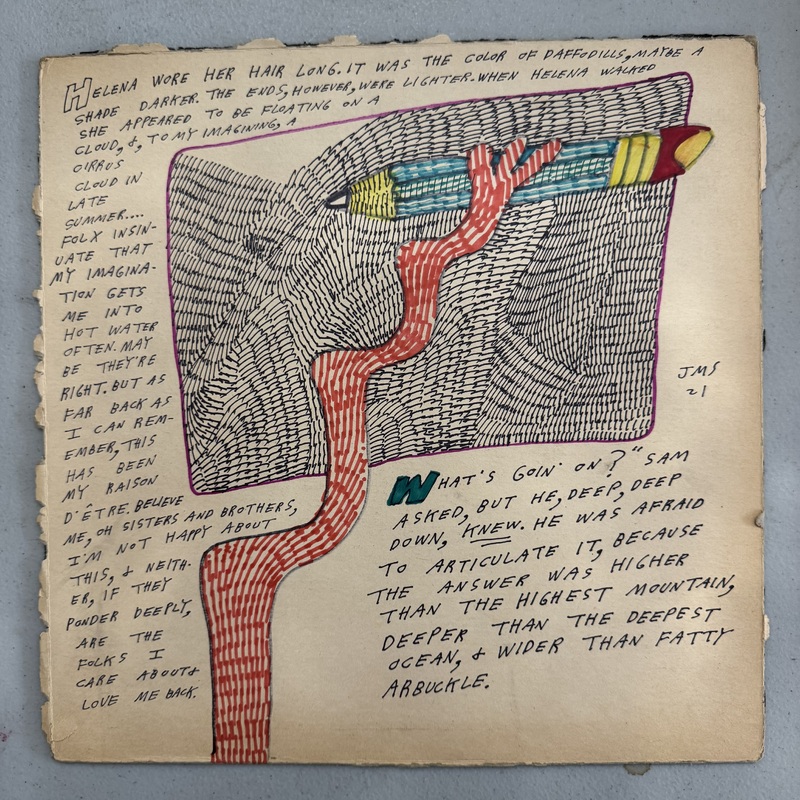 HELENA WORE HER HAIR LONG. IT WAS THE COLOR OF DAFFODILLS, MAYBE A
SHADE DARKER. THE ENDS, HOWEVER, WERE LIGHTER. WHEN HELENA WALKED
SHE APPEARED TO BE FLOATING ON A
CLOUD, &, TO MY IMAGINING, A
CIRRUS
CLOUD IN
LATE
SUMMER....
FOLX INSIN-
UATE THAT
MY IMAGINA-
TION GETS
ME INTO
HOT WATER
OFTEN. MAY
BE THEY'RE
RIGHT. BUT AS
FAR BACK AS
I CAN REM-
EMBER, THIS
HAS BEEN
MY RAISON
D'ÊTRE. BELIEVE
ME, OH SISTERS AND BROTHERS,
I'M NOT HAPPY ABOUT
THIS, & NEITH-
ER, IF THEY
PONDER DEEPLY,
ARE THE
FOLKS I
CARE ABOUT &
LOVE ME BACK.
JMS
21
WHAT'S GOIN' ON?" SAM
ASKED, BUT HE, DEEP, DEEP
DOWN, KNEW. HE WAS AFRAID
TO ARTICULATE IT, BECAUSE
THE ANSWER WAS HIGHER
THAN THE HIGHEST MOUNTAIN,
DEEPER THAN THE DEEPEST
OCEAN, & WIDER THAN FATTY
ARBUCKLE.